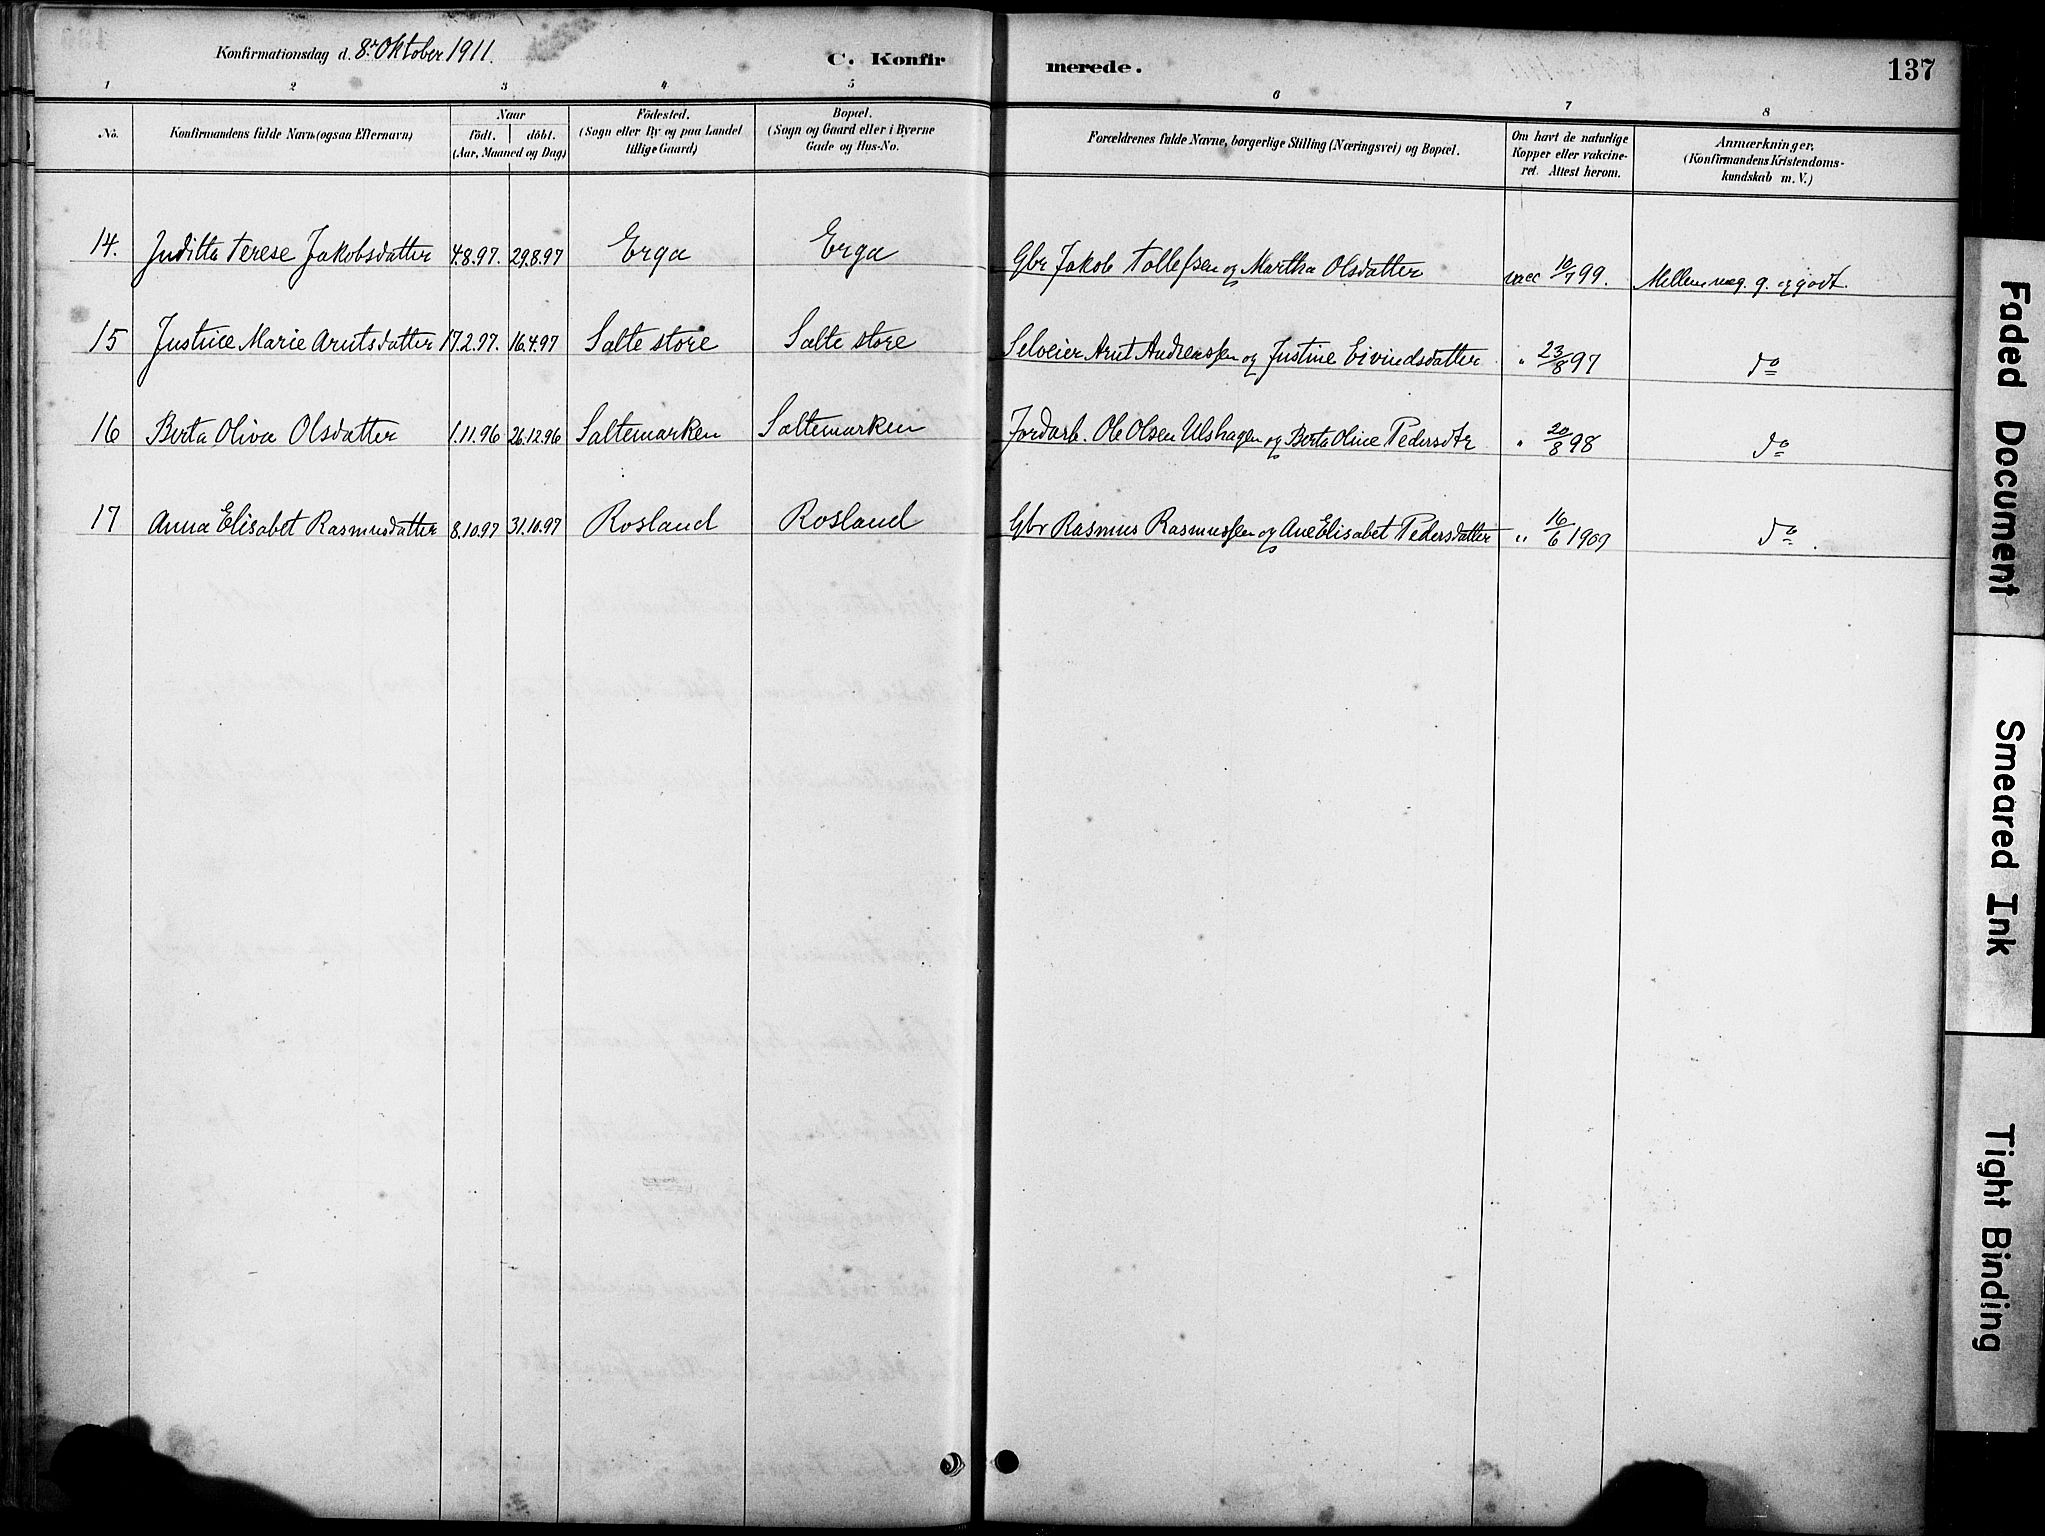 Konfirmationsdag d. 8r Oktober 1911.
C. Konfir
merede.
137
1 2 3 4 5 6 7 8
No.
Konfirmandens fulde Navn (ogsaa Efternavn)
Naar
födt. döbt.
(Aar, Maaned og Dag)
Födested.
(Sogn eller By og paa Landet
tillige Gaard)
Bopæl.
(Sogn og Gaard eller i Byerne
Gade og Hus-No.
Forældrenes fulde Navne, borgerlige Stilling (Næringsvei) og Bopæl.
Om havt de naturlige
Kopper eller vakcine-
ret. Attest herom.
Anmærkninger.
(Konfirmandens Kristendoms-
kundskab m. V.)
14. Juditta Terese Jakobsdatter 4.8.97. 29.8.97 Erga Erga Gbr Jakob Tollefsen og Martha Olsdatter vacc 10/7 99. Mellem meg. g. og godt.
15 Justine Marie Arntsdatter 17.2.97. 16.4.97 Salte store Salte store Selveier Arnt Andreassen og Justine Eivindsdatter " 23/8 97 do
16 Berta Oliva Olsdatter 1.11.96 26.12.96 Saltemarken Saltemarken Jordarb. Ole Olsen Ulshagen og Berta Oline Pedersdtr " 20/8 98 do
17 Anna Elisabet Rasmusdatter 8.10.97 31.10.97 Rosland Rosland Gbr Rasmus Rasmussen og Ane Elisabet Pedersdatter " 16/6 1909 do.
Faded Document
Smeared Ink
Tight Binding